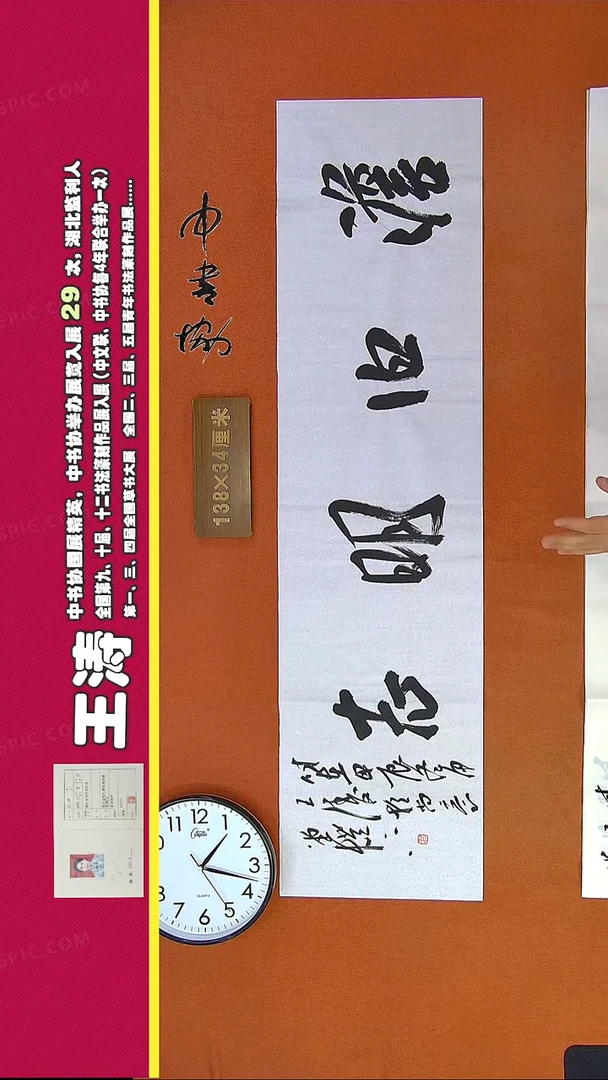 王涛
中书协国展精英，中书协举办展览入展 29 次，湖北监利人
全国第九、十届、十二书法篆刻作品展入展（中文联、中书协每4年联合举办一次）
第一、三、四届全国草书大展　全国二、三届、五届青年书法篆刻作品展……
中书协
138×34厘米
澹泊明志
11 12 1 2 3 4 5 6 7